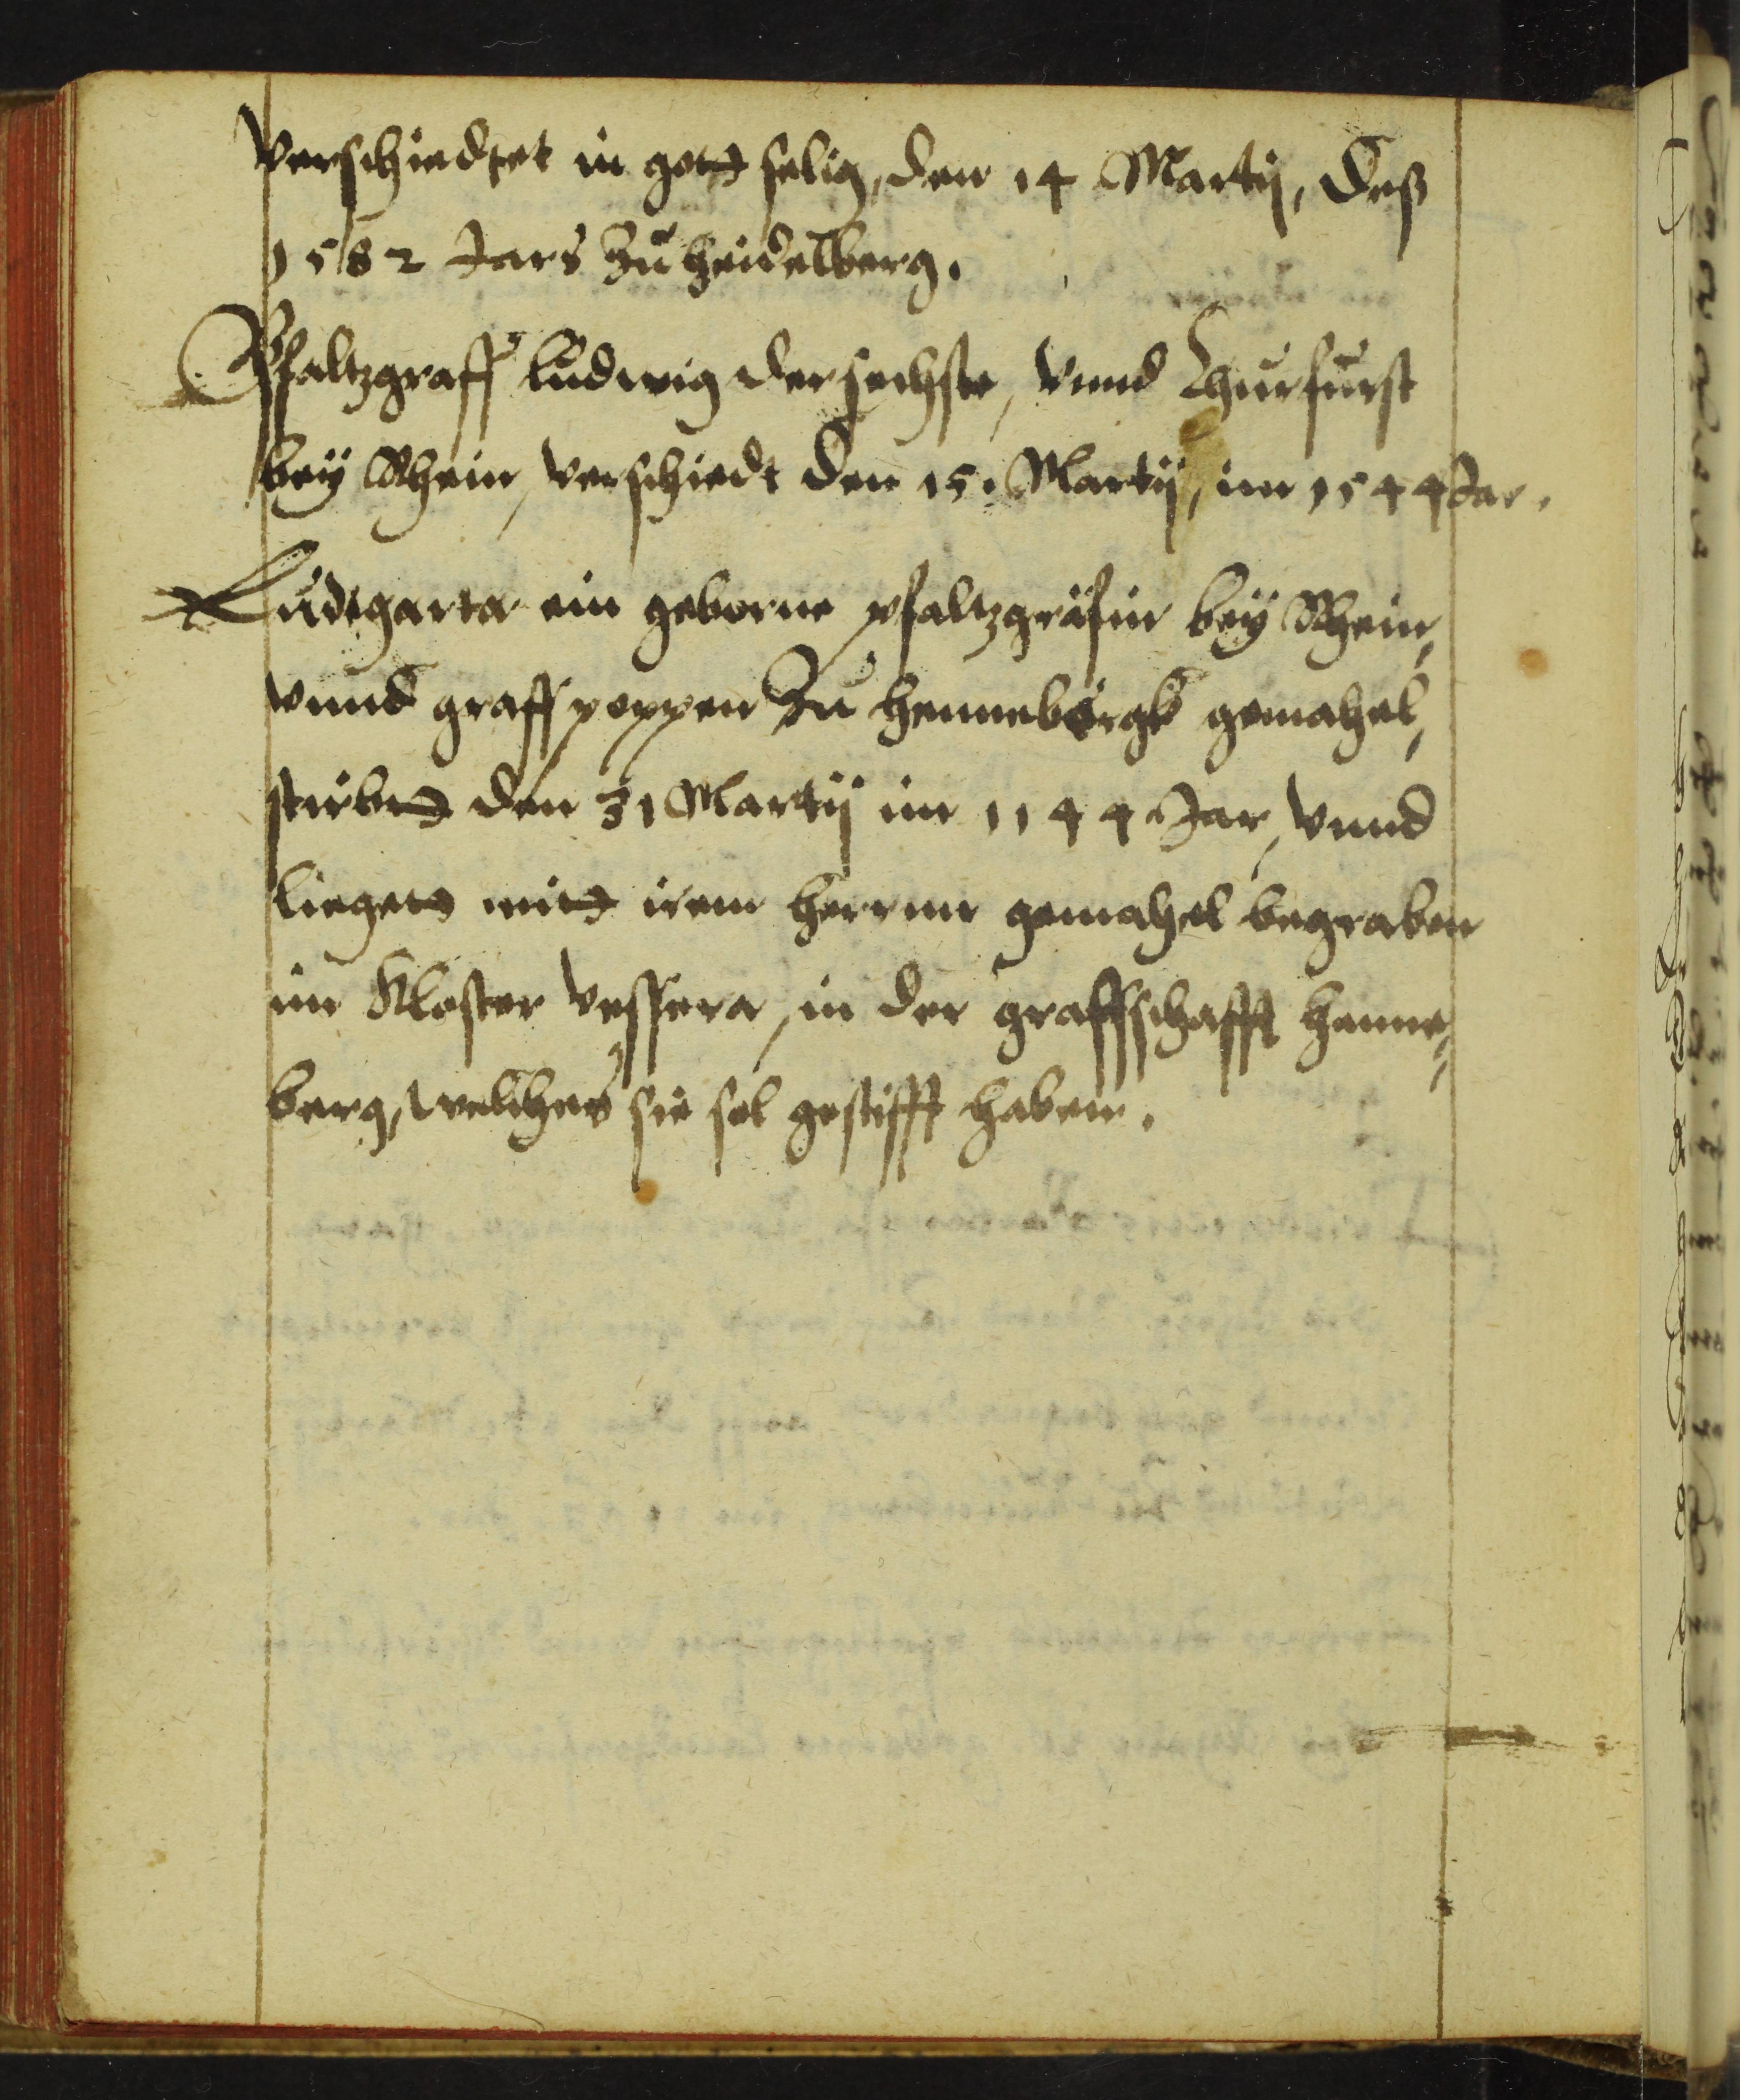 verschiedtet in gott selig, den 14 Martij, deß
1582 Jars zu heidelberg.
Pfaltzgraff ludwig der sechste, vnnd Churfurst
bey Rhein, verschiedt den 15. Martij, im 1544 Jar.
Ludtgarta ein geborne pfaltzgräfin bey Rhein,
vnnd graff poppen zu hennebergk gemahel,
stirbtt den 31 Martij im 1144 Jar, vnnd
liegett mitt irem herrnn gemahel begraben
im Kloster Vessera, in der graffschafft henne,
berg, welches sie sol gestifft haben.